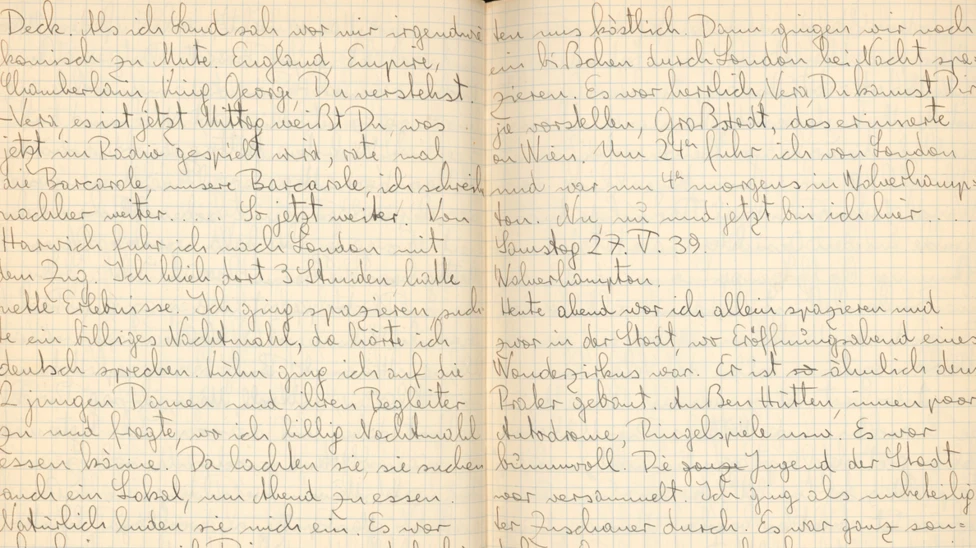 Deck. Als ich Land sah war mir irgendwie
komisch zu Mute. England, Empire,
Chamberlain King George, Du verstehst.
-Vera, es ist jetzt Mittag weißt Du, was
jetzt im Radio gespielt wird, rate mal
die Barcarole, unsere Barcarole, ich schreib
nachher weiter..... So jetzt weiter. Von
Harwich fuhr ich nach London mit
dem Zug. Ich blieb dort 3 Stunden, hatte
nette Erlebnisse. Ich ging spazieren, such-
te ein billiges Nachtmahl, da hörte ich
deutsch sprechen. Kühn ging ich auf die
2 jungen Damen und ihren Begleiter
zu und fragte, wo ich billig Nachtmahl
essen könne. Da lachten sie, sie suchen
auch ein Lokal, um Abend zu essen.
Natürlich luden sie mich ein. Es war
ten uns köstlich. Dann gingen wir noch
ein bißchen durch London bei Nacht spa-
zieren. Es war herrlich, Vera Du kannst Dir
ja vorstellen, Großstadt, das erinnerte
an Wien. Um 24h fuhr ich von London
und war um 4h morgens in Wolverhamp-
ton. Nu nü und jetzt bin ich hier....
Samstag 27. V. 39.
Wolverhampton.
Heute abend war ich allein spazieren und
zwar in der Stadt, wo Eröffnungsabend eines
Wanderzirkus war. Er ist so ähnlich dem
Prater gebaut. Außen Hütten, innen paar
Autodrome, Ringelspiele usw. Es war
bummvoll. Die ganze Jugend der Stadt
war versammelt. Ich ging als unbeteilig-
ter Zuschauer durch. Es war ganz son-